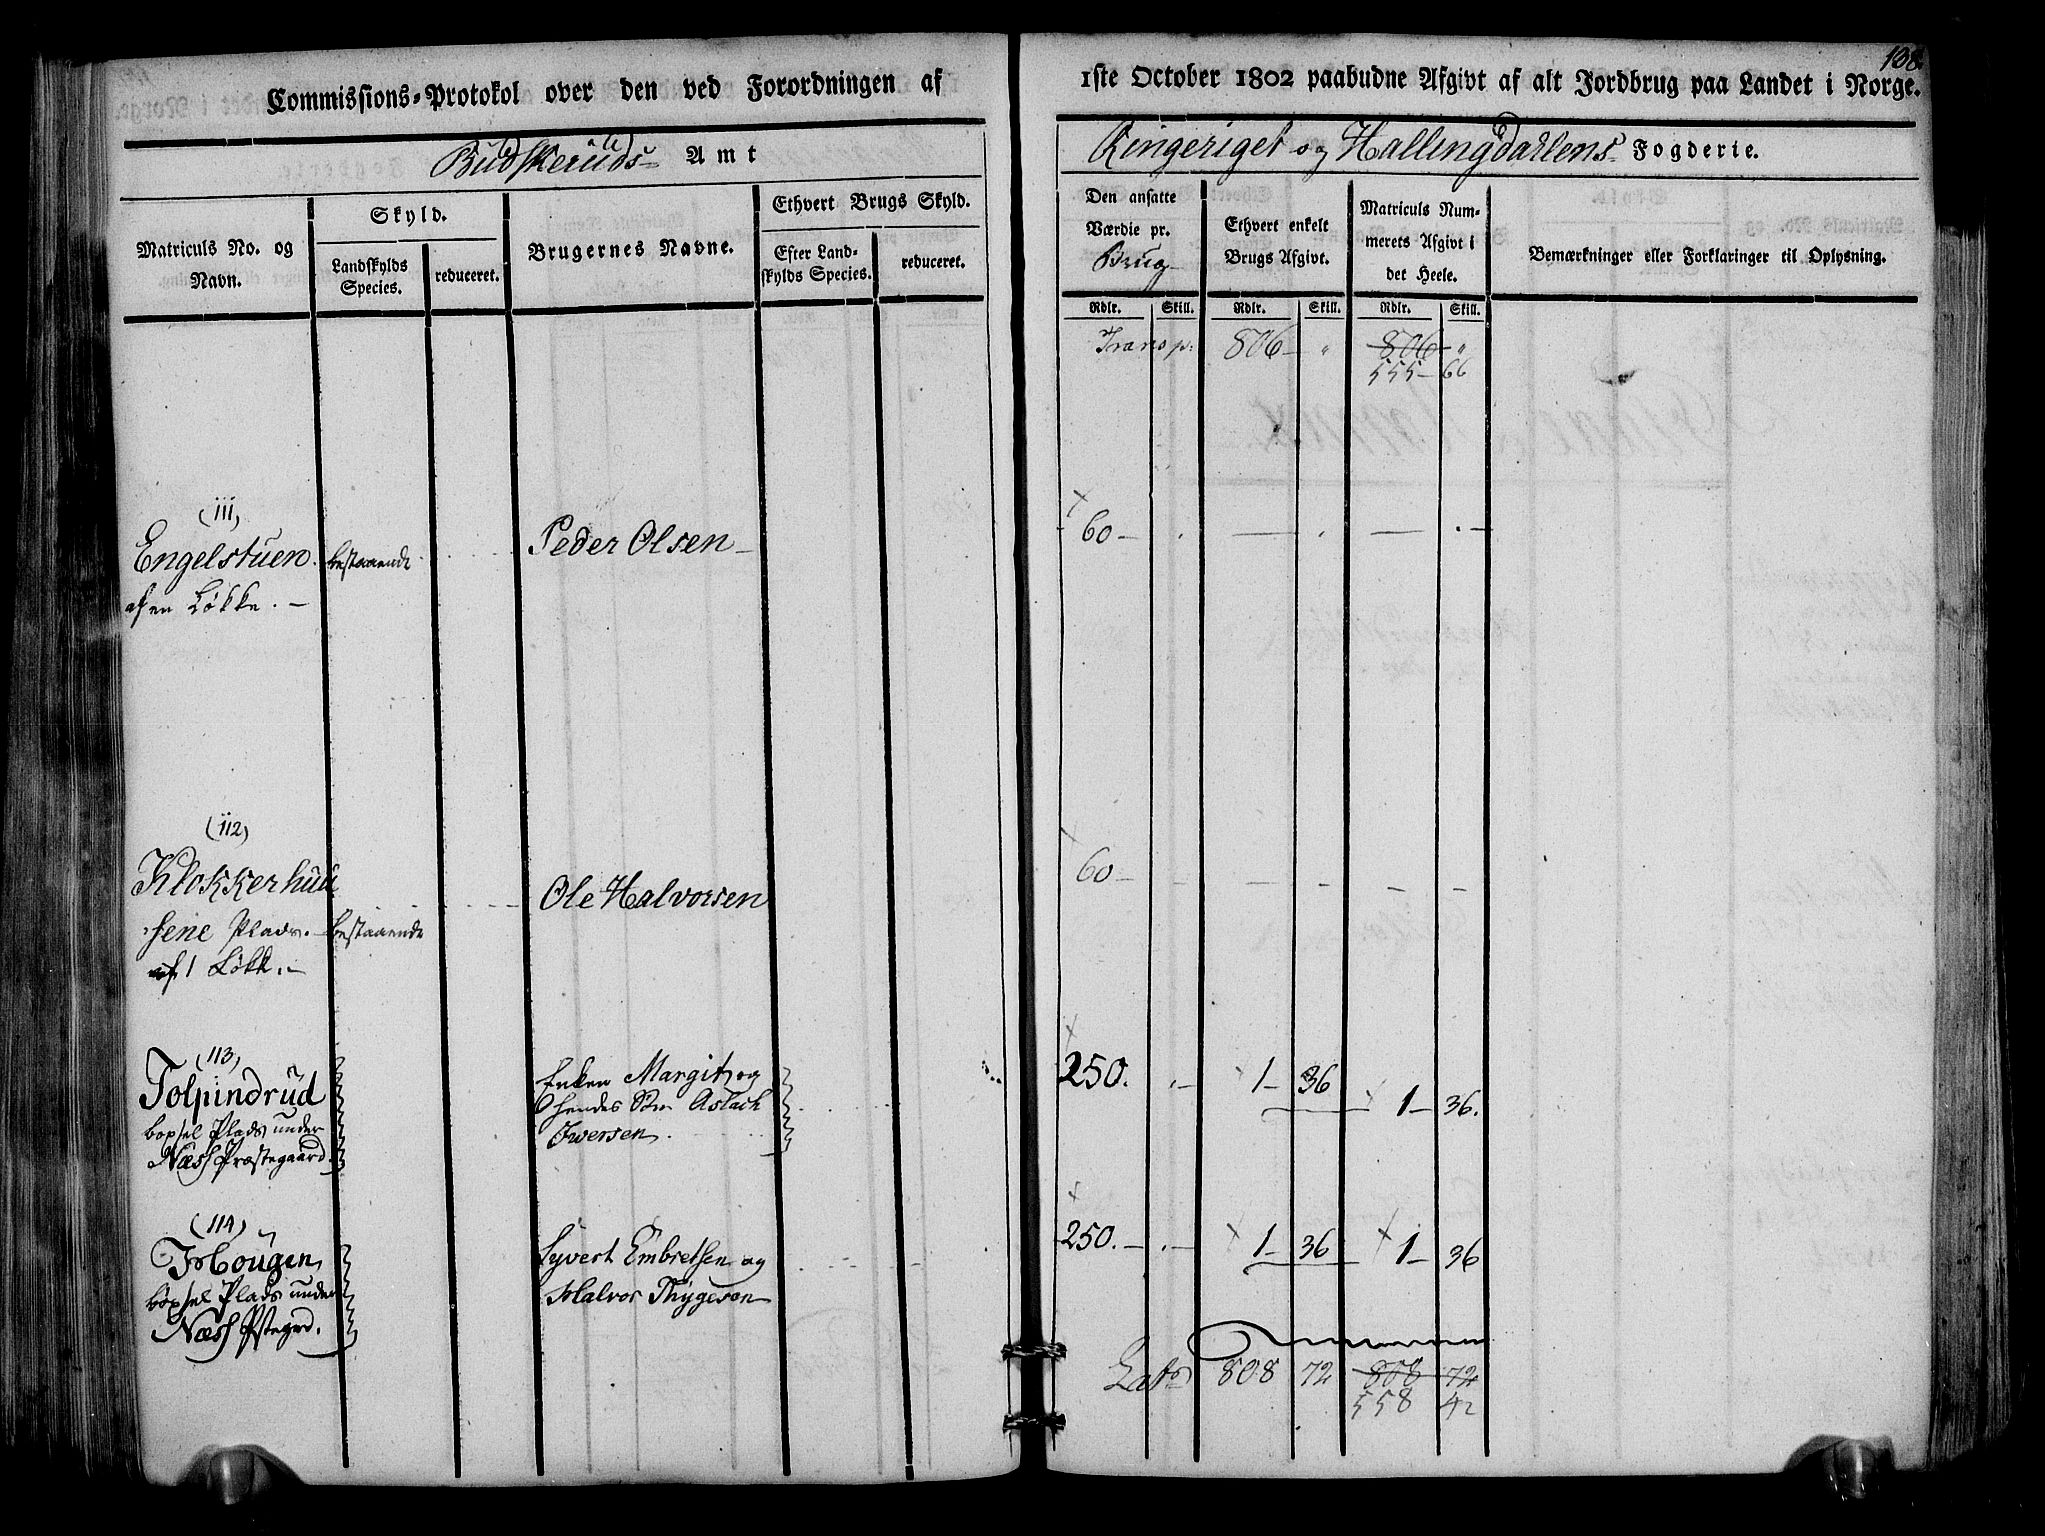 Commissions-Protokol over den ved Forordningen af
Budskeruds Amt
Matriculs No. og Navn.
Skyld.
Landskylds Species.
reduceret.
Brugernes Navne.
Ethvert Brugs Skyld.
Efter Landskylds Species.
reduceret.
(111)
Engelstuen. bestaaende Peder Olsen
af en Løkke.
(112)
Klokkerhuu Ole Halvorsen
sene Plads. bestaaende
af 1 Løkk.
(113)
Tolpindrud Enken Margit og
boxsel Plads under hendes Søn Aslach
Næss Præstegaard Iwersen.
(114)
Hougen Syvert Embretsen og
boxsel Plads under Halvor Thygesøn
Næss Pstegrd.
138
1ste October 1802 paabudne Afgivt af alt Jordbrug paa Landet i Norge.
Ringeriget og Hallingdahlens Fogderie.
Den ansatte Værdie pr. Brug
Ethvert enkelt Brugs Afgivt.
Matriculs Nummerets Afgivt i det Heele.
Bemærkninger eller Forklaringer til Oplysning.
Rdlr. Skill. Rdlr. Skill. Rdlr. Skill.
Transp: 806 — " 806 "
555 — 66
60 — . — . — . —
60 — — — — — —
250. . — 1 — 36 1 — 36.
250. — . — 1 — 36 1 — 36
Lats 808 72 808 72
558 42